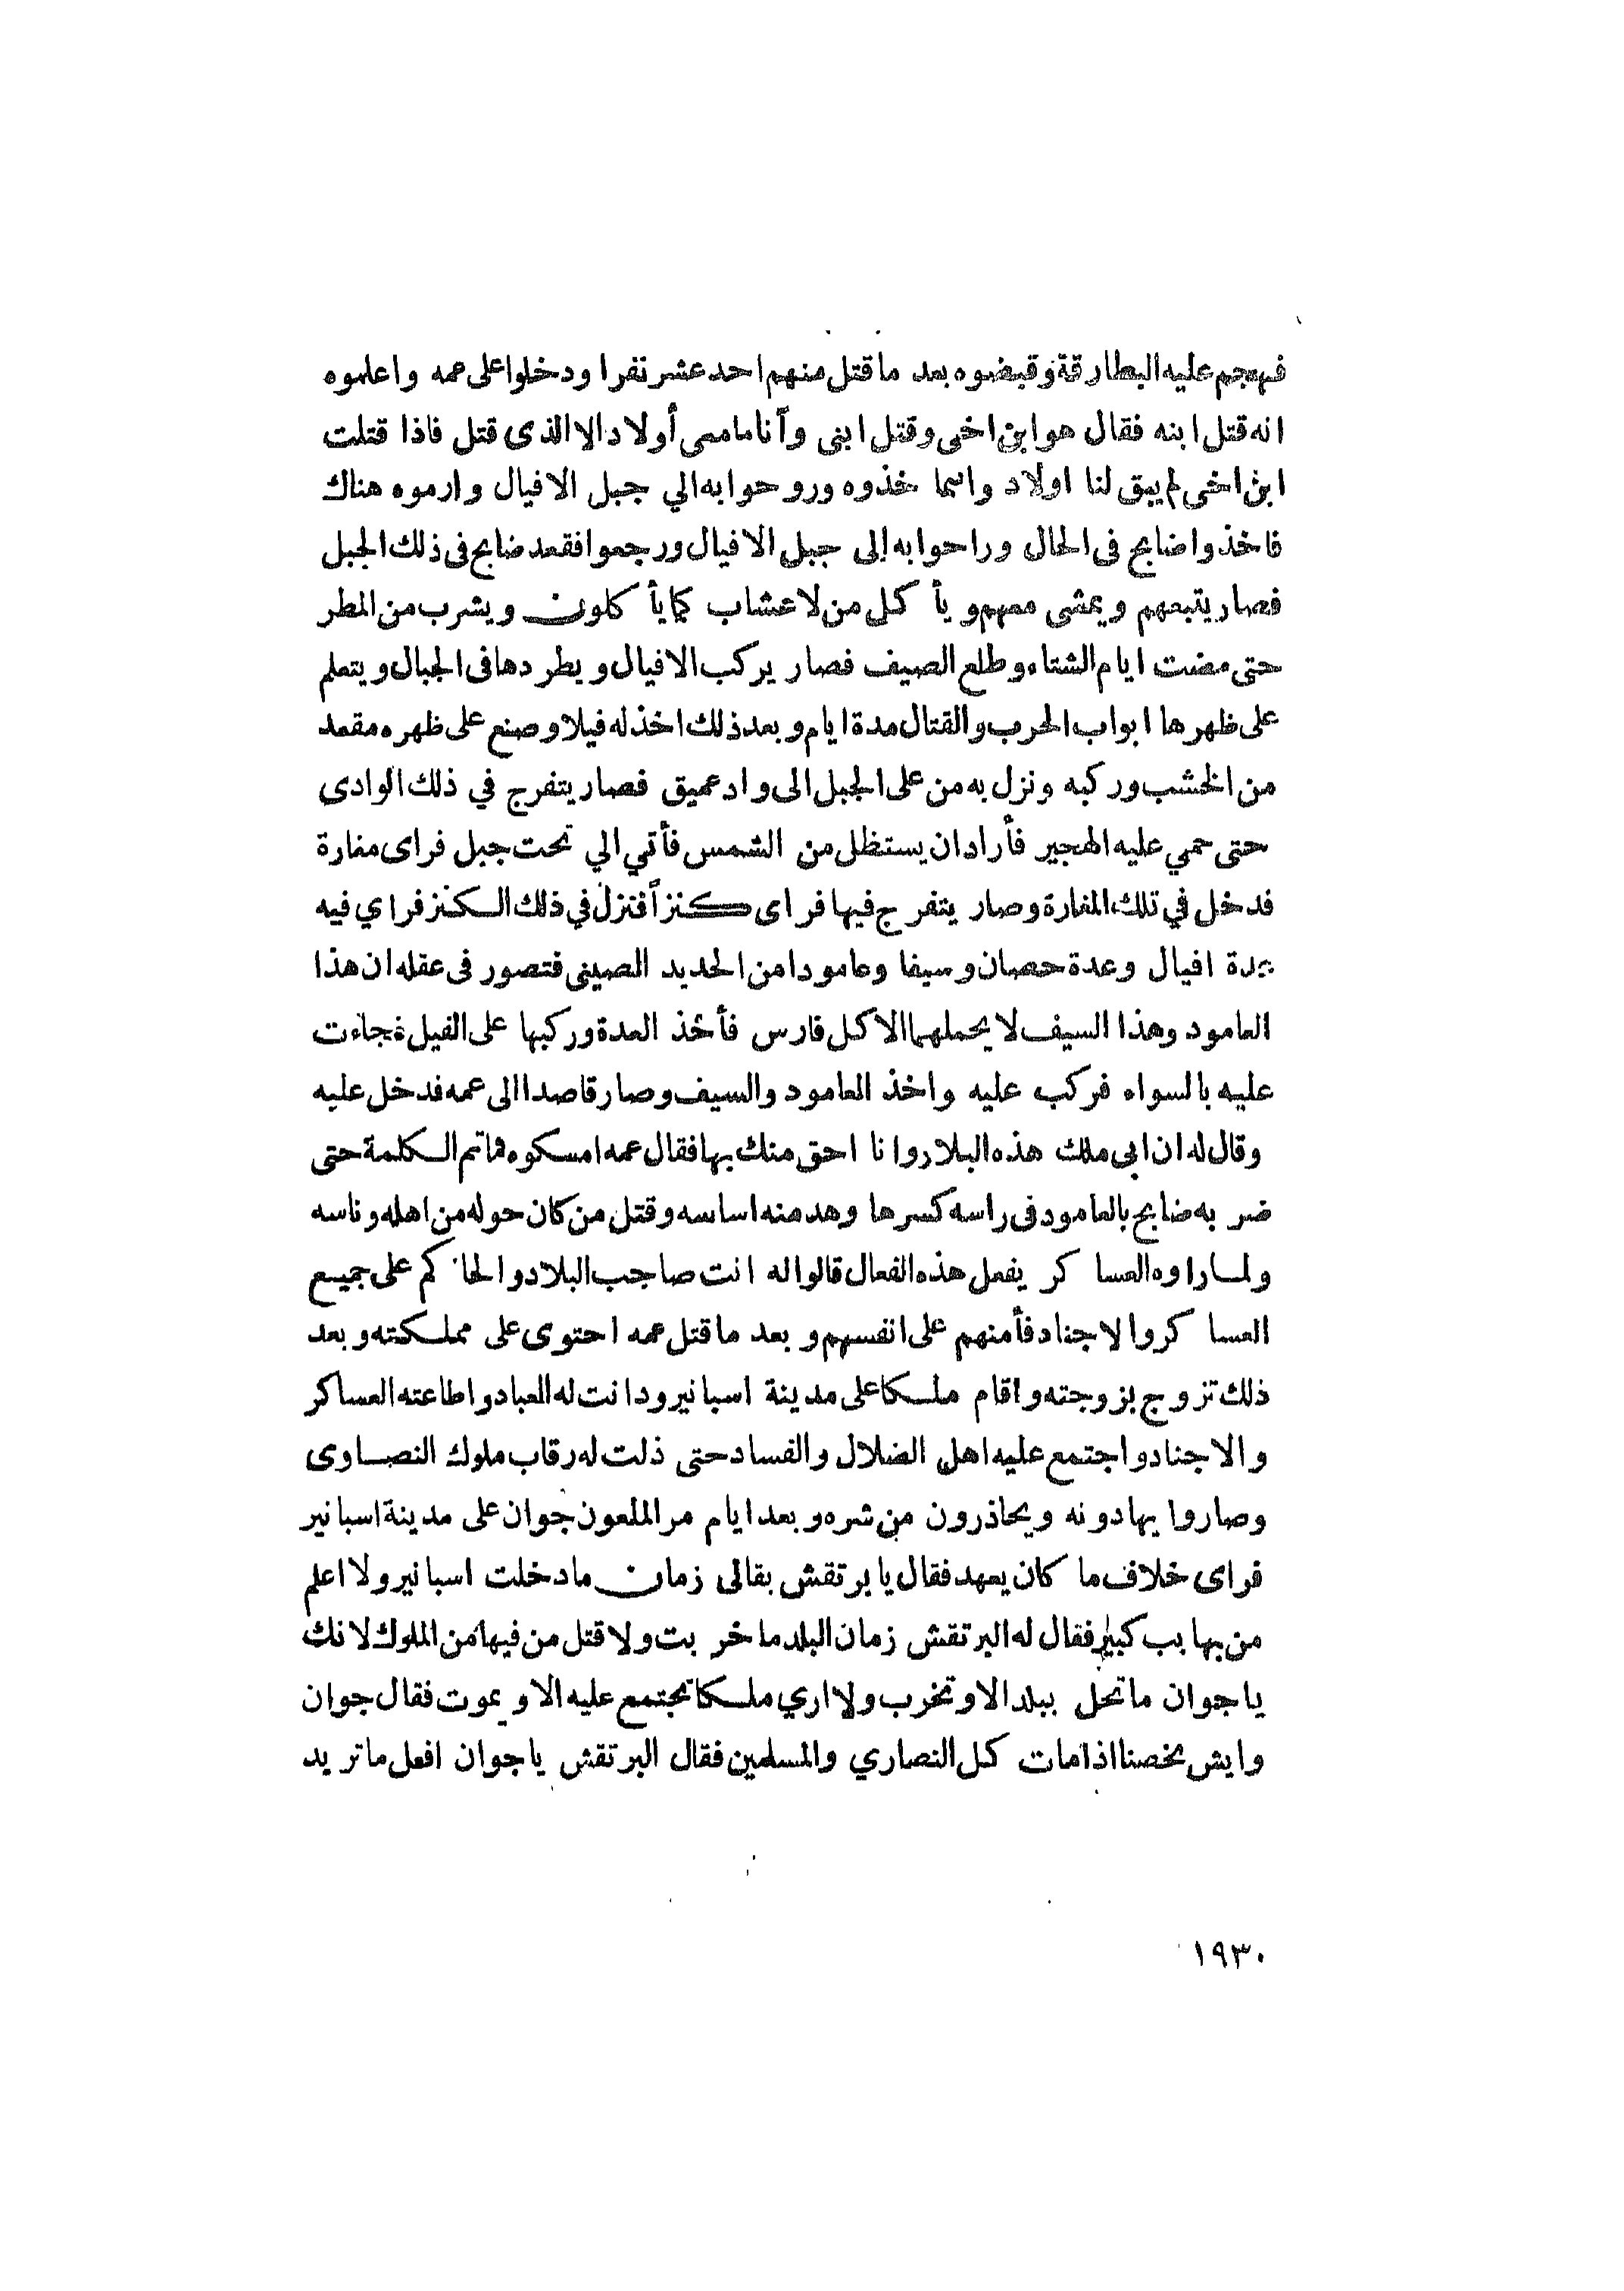 فهجم عليه البطارقة وقبضوه بعد ما قتل منهم احد عشر نفرا ودخلوا على عمه واعلموه
انه قتل ابنه فقال هو ابن اخى وقتل ابنى وأنا مامعى أولاد الا الذى قتل فاذا قتلت
ابن اخى لم يبق لنا اولاد وانما خذوه وروحوا به الي جبل الافيال وارموه هناك
فاخذوا ضابح فى الحال وراحوا به إلى جبل الافيال ورجعوا فقعد ضابح فى ذلك الجبل
فصار يتبعهم ويمشى معهم ويأكل من لاعشاب كما يأكلون ويشرب من المطر
حتى مضت ايام الشتاء وطلع الصيف فصار يركب الافيال ويطردها فى الجبال ويتعلم
على ظهرها ابواب الحرب والقتال مدة ايام وبعد ذلك اخذ له فيلا وصنع على ظهره مقعد
من الخشب وركبه ونزل به من على الجبل الى واد عميق فصار يتفرج في ذلك الوادى
حتى حمي عليه الهجير فأراد ان يستظل من الشمس فأتي الي تحت جبل فراى مغارة
فدخل في تلك المغارة وصار يتفرج فيها فراى كنزاً فنزل في ذلك الكنز فراي فيه
عدة افيال وعدة حصان وسيفا وعامودا من الحديد الصينى فتصور فى عقله ان هذا
العامود وهذا السيف لا يحملهما الا كل فارس فأخذ العدة وركبها على الفيل فجاءت
عليه بالسواه فركب عليه واخذ العامود والسيف وصار قاصدا الى عمه فدخل عليه
وقال له ان ابي ملك هذه البلاد وانا احق منك بها فقال عمه امسكوه فما تم الكلمة حتى
ضربه ضابح بالعامود فى راسه كسرها وهد منه اساسه وقتل من كان حوله من اهله وناسه
ولما راوه العساكر يفعل هذه الفعال قالوا له انت صاحب البلاد والحاكم على جميع
العساكر والاجناد فأمنهم على انفسهم وبعد ما قتل عمه احتوى على مملكته وبعد
ذلك تزوج بزوجته واقام ملكا على مدينة اسبانير ودانت له العباد واطاعته العساكر
والاجناد واجتمع عليه اهل الضلال والفساد حتى ذلت له رقاب ملوك النصاوى
وصاروا يهادونه ويحاذرون من شره وبعد ايام مر الملعون جوان على مدينة اسبانير
فراى خلاف ما كان يعهد فقال يا برتقش بقالى زمان مادخلت اسبانير ولا اعلم
من بها بب كبير فقال له البرتقش زمان البلد ما خربت ولا قتل من فيها من الملوك لانك
يا جوان ما تحل ببلد الا وتخرب ولا اري ملكا تجتمع عليه الا ويموت فقال جوان
وايش يخصنا اذا مات كل النصاري والمسلمين فقال البرتقش يا جوان افعل ما تريد
١٩٣٠